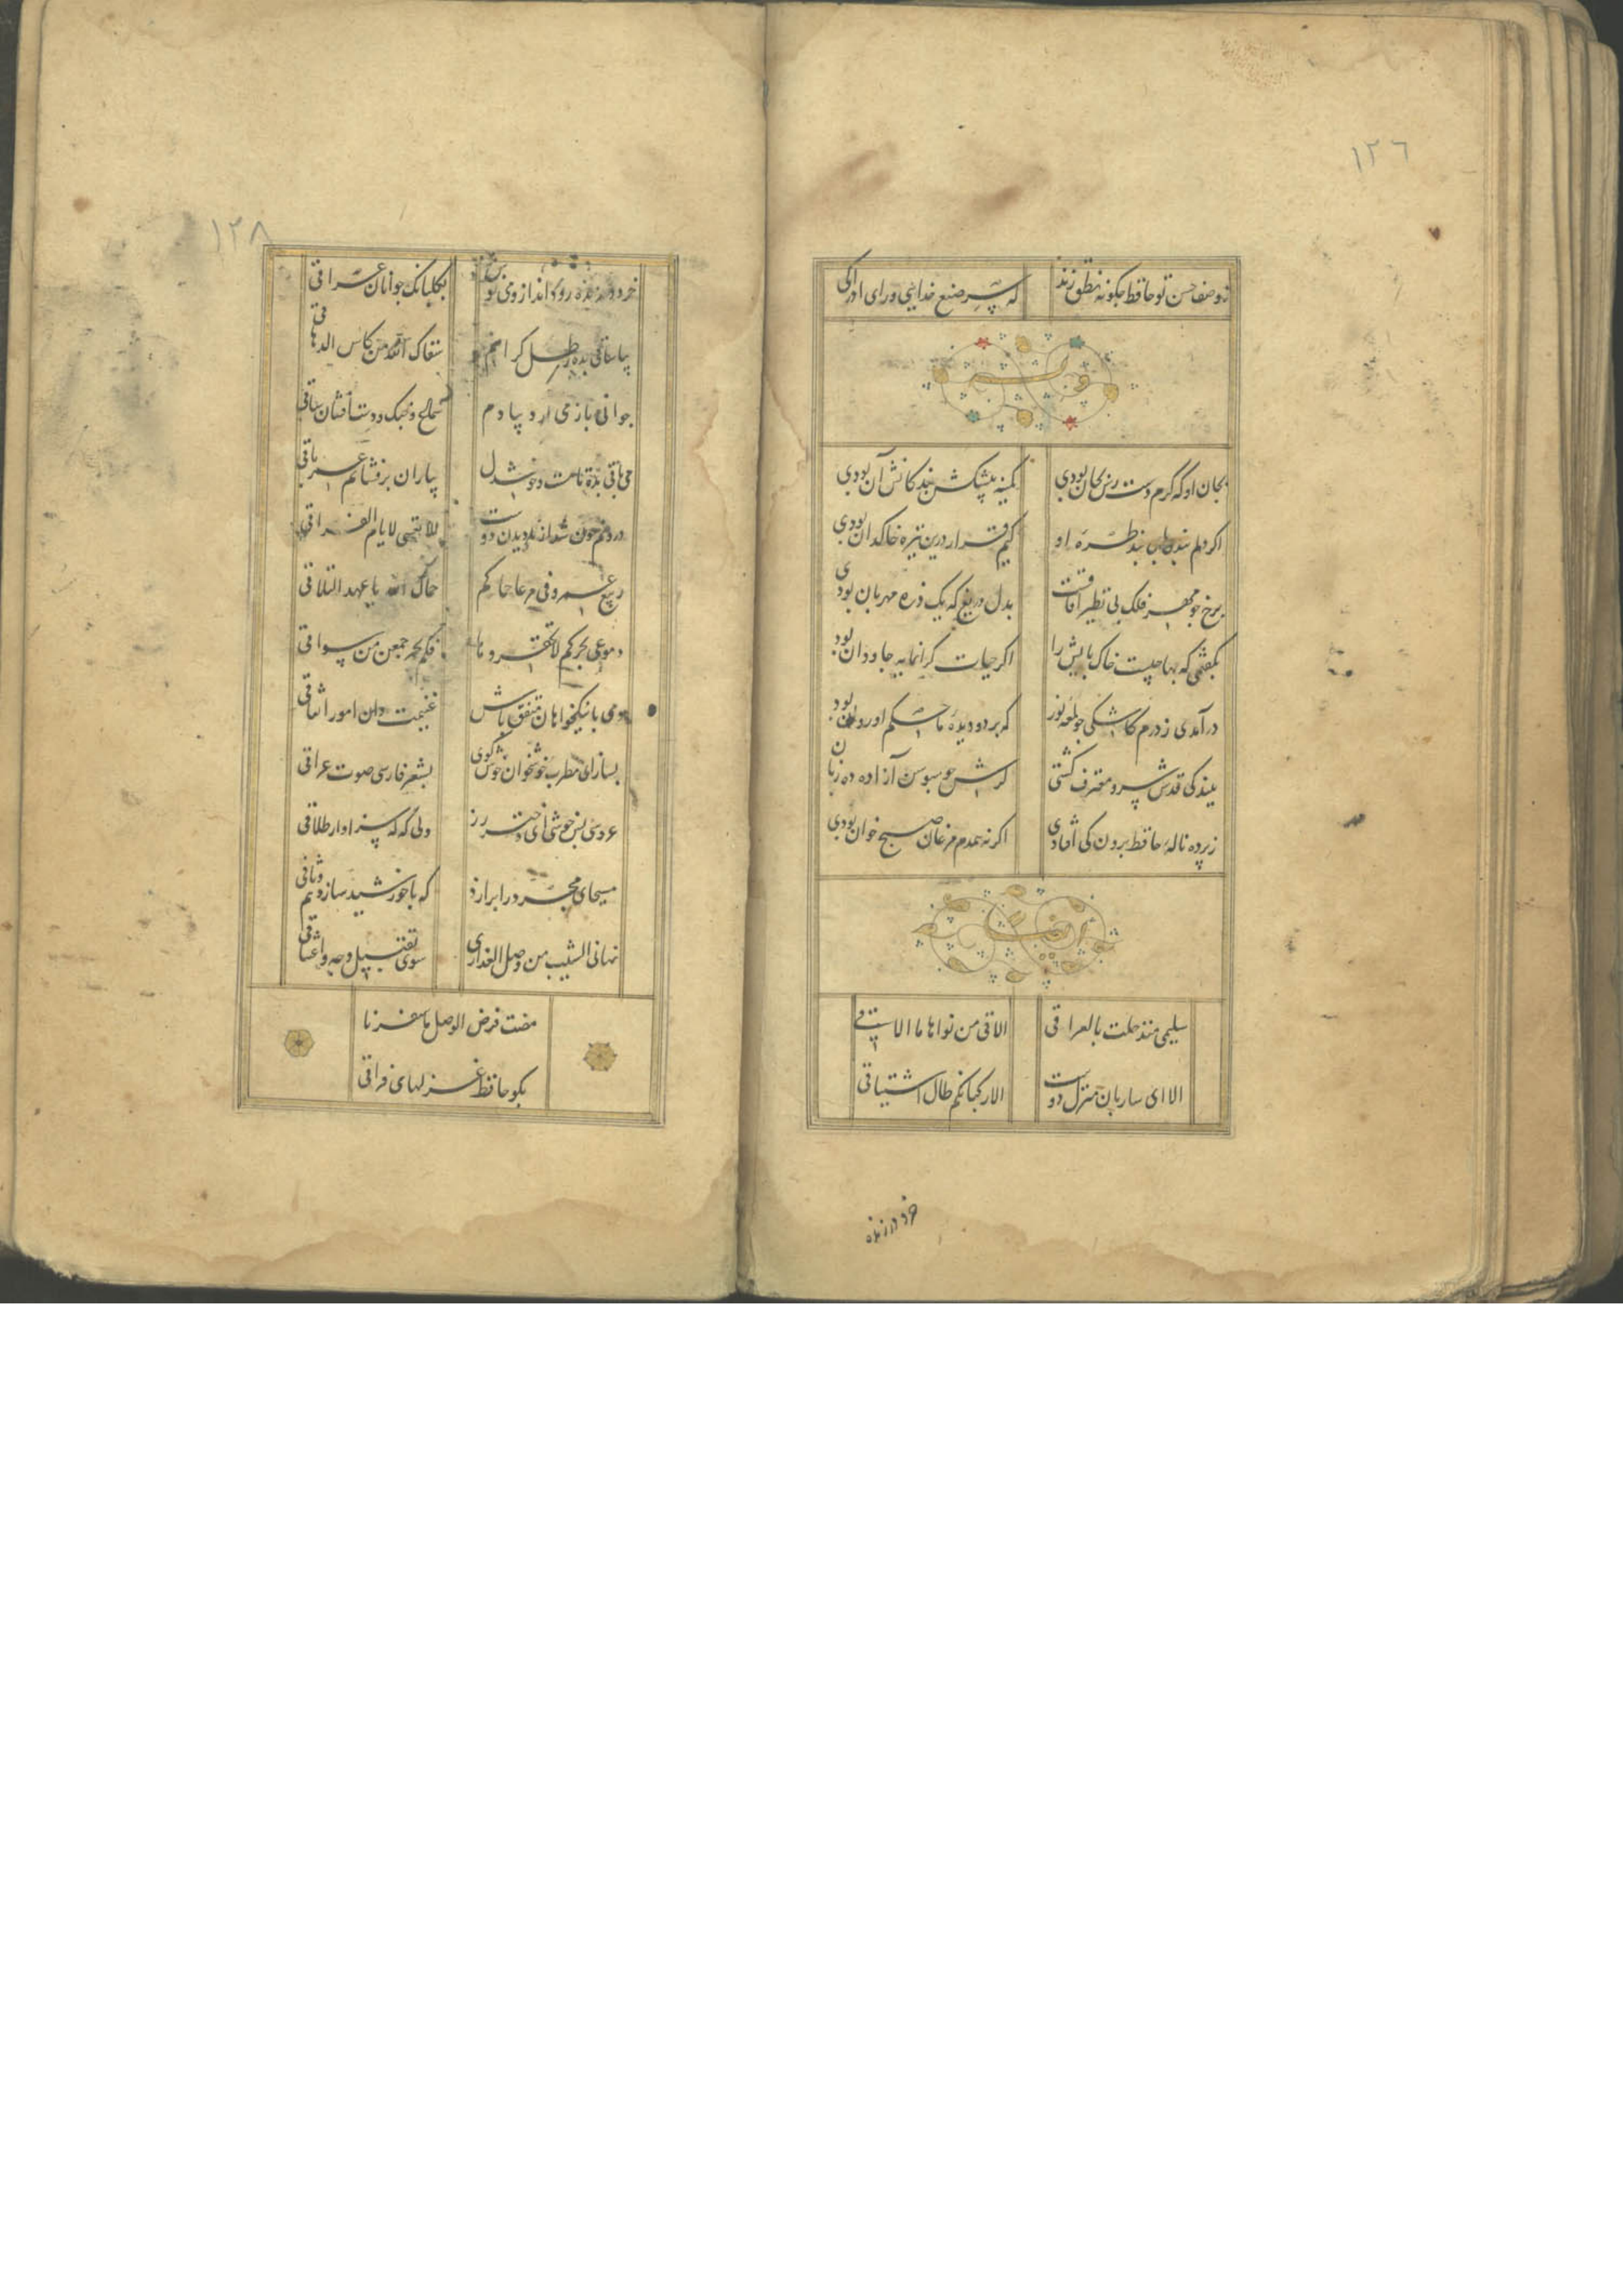 ١٢٦
ز وصف حسن تو حافظ چکونه نطق زند
که سر صنع خدایی ورای ادراکی
وله
بجان او که کرم دست رس بجان بودی
کمینه پیشکش بندکانش آن بودی
اکر دلم نبدی بای بند طره او
کیم قرار درین تیره خاکدان بودی
برخ جو مهر فلک بی نظیر آفاقست
بدل دریغ که یک ذره مهربان بودی
بکفتمی که بها چیست خاک بایش را
اکر حیات کرانمایه جاودان بودی
درآمدی ز درم کاشکی جو لمعه نور
که بر دو دیده ما حکم او روان بودی
ببندکی قدش سرو معترف کشتی
کرش جو سوسن آزاده ده زبان بودی
ز پرده ناله حافظ برون کی افتادی
اکر نه همدم مرغان صبح خوان بودی
ایضا
سلیمی منذ حلت بالعراقی
الاقی من نواها ما الاقی
الا ای ساربان منزل دوست
الا رکبانکم طال اشتیاقی
خرد در زنده
١٢٨
خرد در زنده رود انداز و می نوش
بکلبانک جوانان عراقی
بیا ساقی بده رطل کرانم
سقاک الله من کاس الدهاقی
جوانی باز می ارد بیادم
سماع جنک و دست افشان ساقی
می باقی بده تا مست و خوشدل
بیاران برفشانم عمر باقی
درونم خون شد از نادیدن دوست
الا تبتی لایام الفراقی
ربیع العمر فی مرعا حماکم
حماک الله یا عهد التلاقی
دموعی بعدکم لا تحقروها
فکم بحر جمعن من سواقی
دمی با نیکخواهان متفق باش
غنیمت دان امور اتفاقی
بساز ای مطرب خوشخوان خوش کوی
بشعر فارسی صوت عراقی
عروسی بس خوشی ای دختر رز
ولی که که سزاوار طلاقی
مسیحای مجرد را برازد
که با خورشید سازد هم وثاقی
نهانی الشیب من وصل العذاری
سوی تقبیل وجه و اعتناقی
مضت فرص الوصل ما شعرنا
بکو حافظ غزلهای فراقی